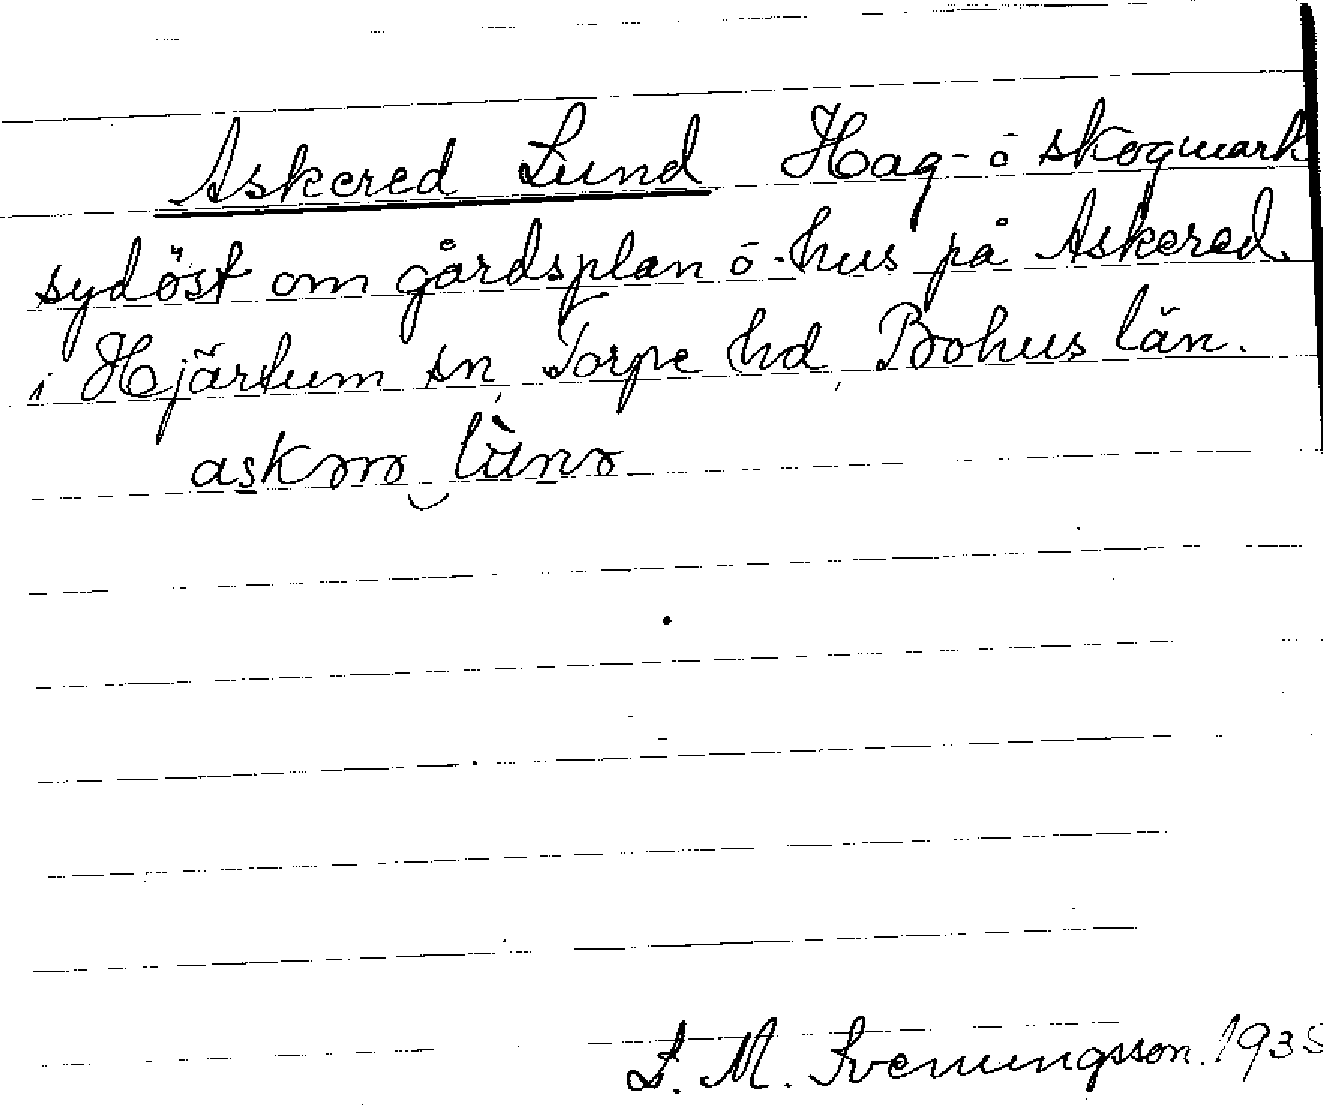 Askered Lund Hag- o skogmark
sydöst om gårdsplan o- hus på Askered.
i Hjärtum sn, Torpe hd, Bohus län.
L. M. Svenungsson. 1935